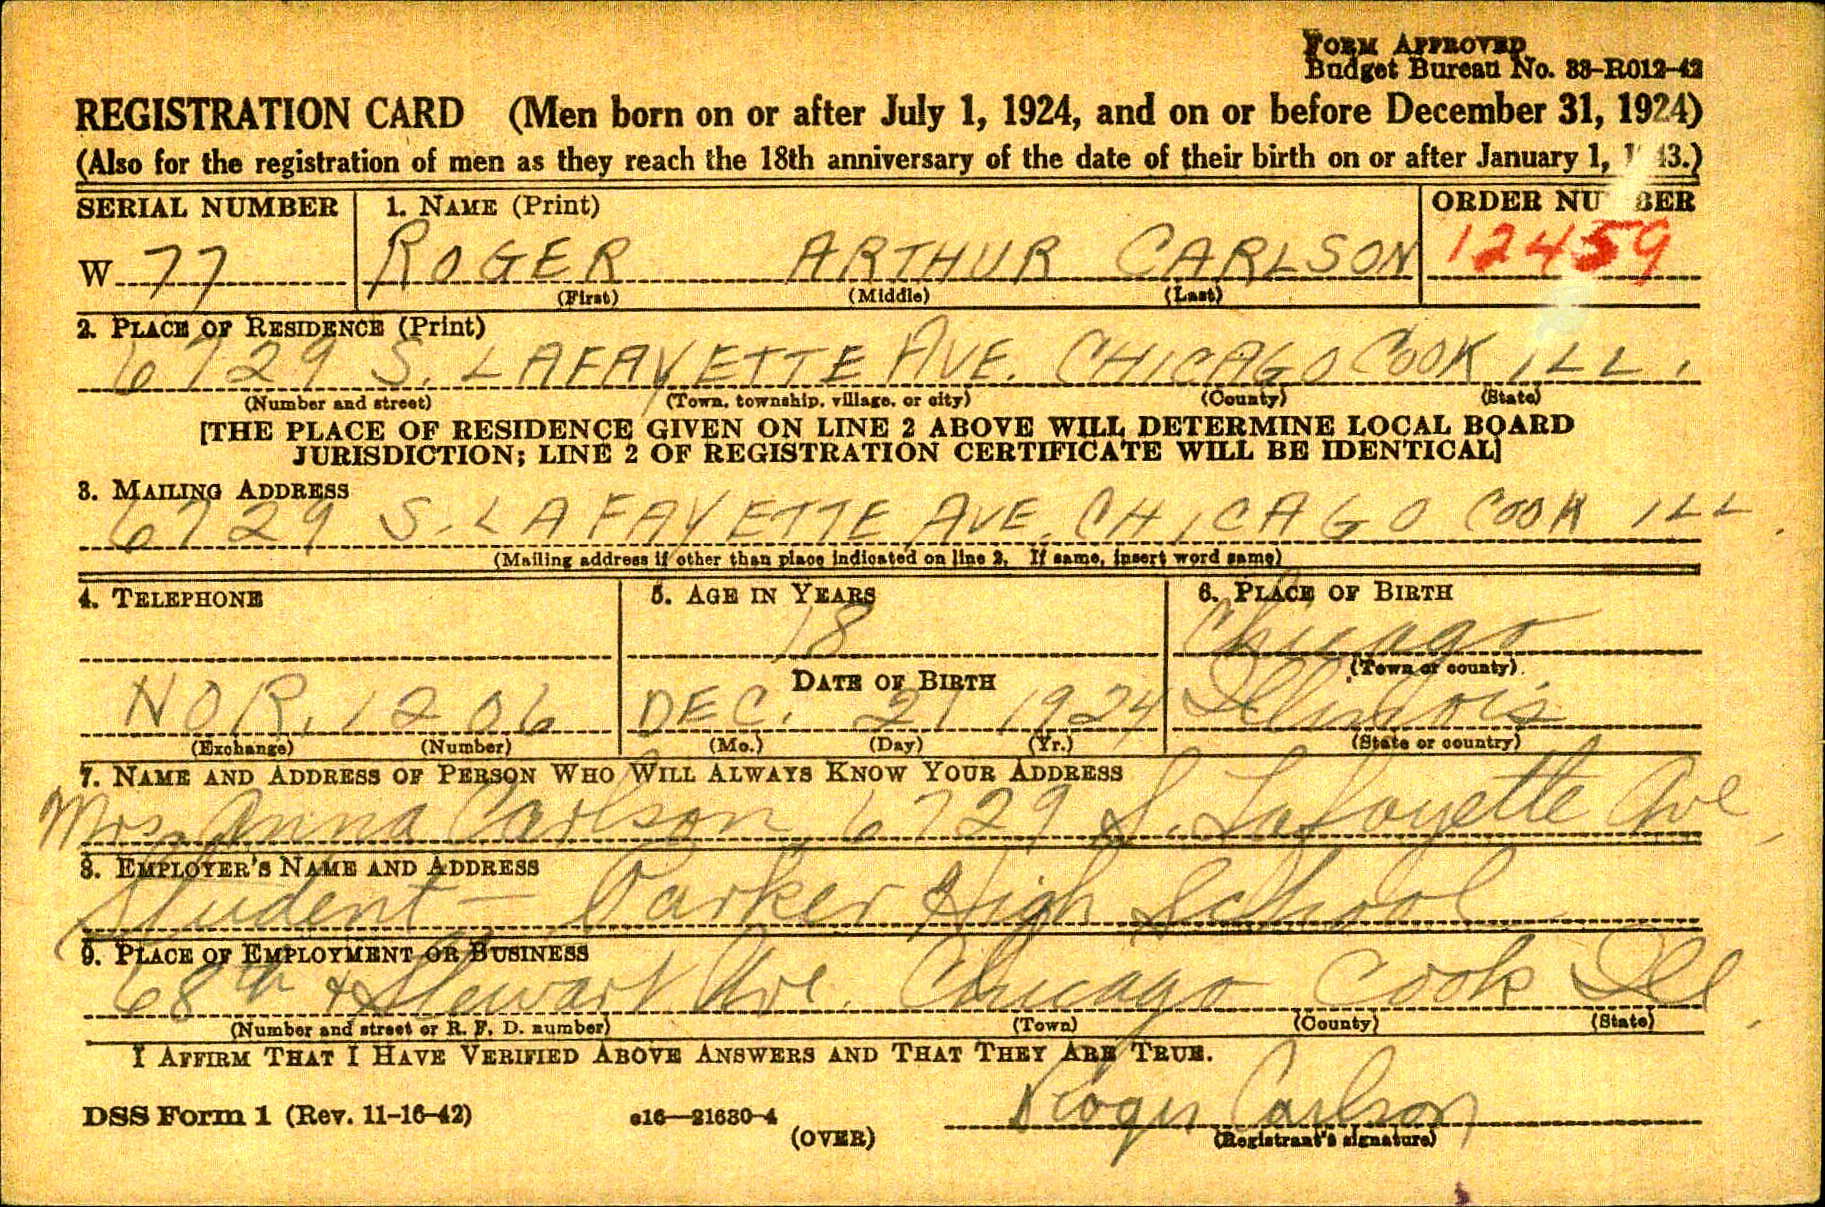 FORM APPROVED
Budget Bureau No. 33-R012-42
REGISTRATION CARD (Men born on or after July 1, 1924, and on or before December 31, 1924)
(Also for the registration of men as they reach the 18th anniversary of the date of their birth on or after January 1, 1943.)
SERIAL NUMBER 1. NAME (Print) ORDER NUMBER
W 77 ROGER ARTHUR CARLSON 12459
(First) (Middle) (Last)
2. PLACE OF RESIDENCE (Print)
6729 S. LAFAYETTE AVE. CHICAGO COOK ILL.
(Number and street) (Town, township, village, or city) (County) (State)
[THE PLACE OF RESIDENCE GIVEN ON LINE 2 ABOVE WILL DETERMINE LOCAL BOARD
JURISDICTION; LINE 2 OF REGISTRATION CERTIFICATE WILL BE IDENTICAL]
3. MAILING ADDRESS
6729 S. LAFAYETTE AVE. CHICAGO COOK ILL.
(Mailing address if other than place indicated on line 2. If same, insert word same)
4. TELEPHONE 5. AGE IN YEARS 6. PLACE OF BIRTH
18 Chicago
DATE OF BIRTH (Town or county)
NOR. 1206 DEC. 21 1924 Illinois
(Exchange) (Number) (Mo.) (Day) (Yr.) (State or country)
7. NAME AND ADDRESS OF PERSON WHO WILL ALWAYS KNOW YOUR ADDRESS
Mrs. Anna Carlson, 6729 S. Lafayette Ave,
8. EMPLOYER'S NAME AND ADDRESS
Student - Parker High School
9. PLACE OF EMPLOYMENT OR BUSINESS
68th & Stewart Ave. Chicago Cook Ill.
(Number and street or R. F. D. number) (Town) (County) (State)
I AFFIRM THAT I HAVE VERIFIED ABOVE ANSWERS AND THAT THEY ARE TRUE.
Roger Carlson
DSS Form 1 (Rev. 11-16-42) c16—21630-4 (OVER) (Registrant's signature)